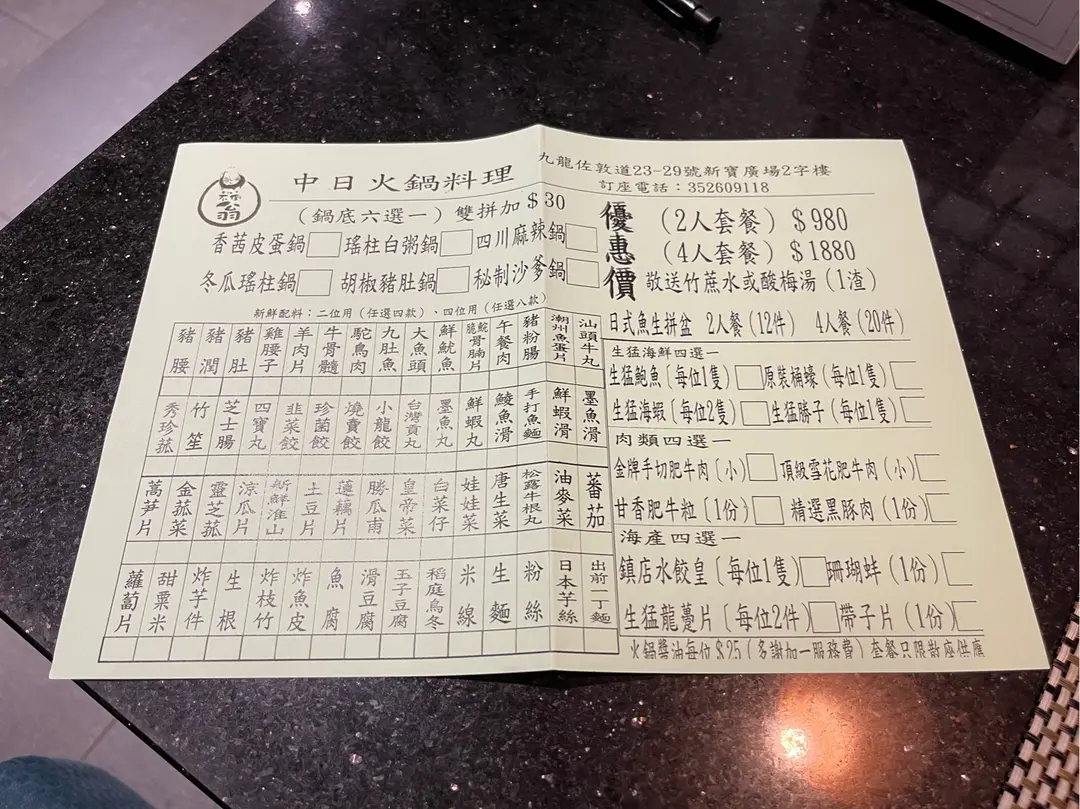 翁
中日火鍋料理
九龍佐敦道23-29號新寶廣場2字樓
訂座電話：352609118
（鍋底六選一）雙拼加＄30
香茜皮蛋鍋 瑤柱白粥鍋 四川麻辣鍋
冬瓜瑤柱鍋 胡椒豬肚鍋 秘制沙爹鍋
新鮮配料：二位用（任選四款）、四位用（任選八款）
豬腰 豬潤 豬肚 雞腰子 羊肉片 牛骨髓 駝鳥肉 九肚魚 大魚頭 鮮魷魚 脆鯇骨腩片 午餐肉 豬粉腸 潮州魚蛋片 汕頭牛丸
秀珍菰 竹笙 芝士腸 四寶丸 韭菜餃 珍菌餃 燒賣餃 小龍餃 台灣貢丸 墨魚丸 鮮蝦丸 鯪魚滑 手打魚麵 鮮蝦滑 墨魚滑
萵笋片 金菰菜 靈芝菰 涼瓜片 新鮮淮山 土豆片 蓮藕片 勝瓜甫 皇帝菜 白菜仔 娃娃菜 唐生菜 松露牛根丸 油麥菜 蕃茄
蘿蔔片 甜粟米 炸芋件 生根 炸枝竹 炸魚皮 魚腐 滑豆腐 玉子豆腐 稻庭烏冬 米線 生麵 粉絲 日本芋絲 出前一丁麵
優惠價
（2人套餐）＄980
（4人套餐）＄1880
敬送竹蔗水或酸梅湯（1渣）
日式魚生拼盆 2人餐（12件） 4人餐（20件）
生猛海鮮四選一
生猛鮑魚〔每位1隻〕 原裝桶蠔（每位1隻）
生猛海蝦〔每位2隻〕 生猛勝子（每位1隻）
肉類四選一
金牌手切肥牛肉〔小〕 頂級雪花肥牛肉（小）
甘香肥牛粒〔1份〕 精選黑豚肉（1份）
海產四選一
鎮店水餃皇〔每位1隻〕 珊瑚蚌（1份）
生猛龍躉片〔每位2件〕 帶子片（1份）
火鍋醬油每位＄25（多謝加一服務費）套餐只限散座供應